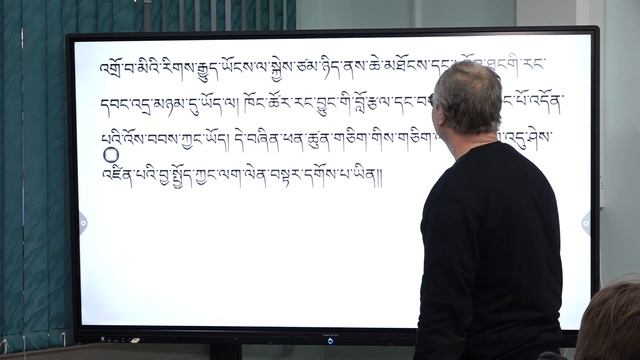 འགྲོ་བ་མིའི་རིགས་རྒྱུད་ཡོངས་ལ་སྐྱེས་ཙམ་ཉིད་ནས་ཆེ་མཐོངས་དང་ ཐངགི་རང་
དབང་འདྲ་མཉམ་དུ་ཡོད་ལ། ཁོང་ཚོར་རང་བྱུང་གི་བློ་རྩལ་དང་ པོ་འདོན་
པའི་འོས་བབས་ཀྱང་ཡོད། དེ་བཞིན་ཕན་ཚུན་གཅིག་གིས་གཅིག་ འདུ་ཤེས་
འཛིན་པའི་བྱ་སྤྱོད་ཀྱང་ལག་ལེན་བསྟར་དགོས་པ་ཡིན།།